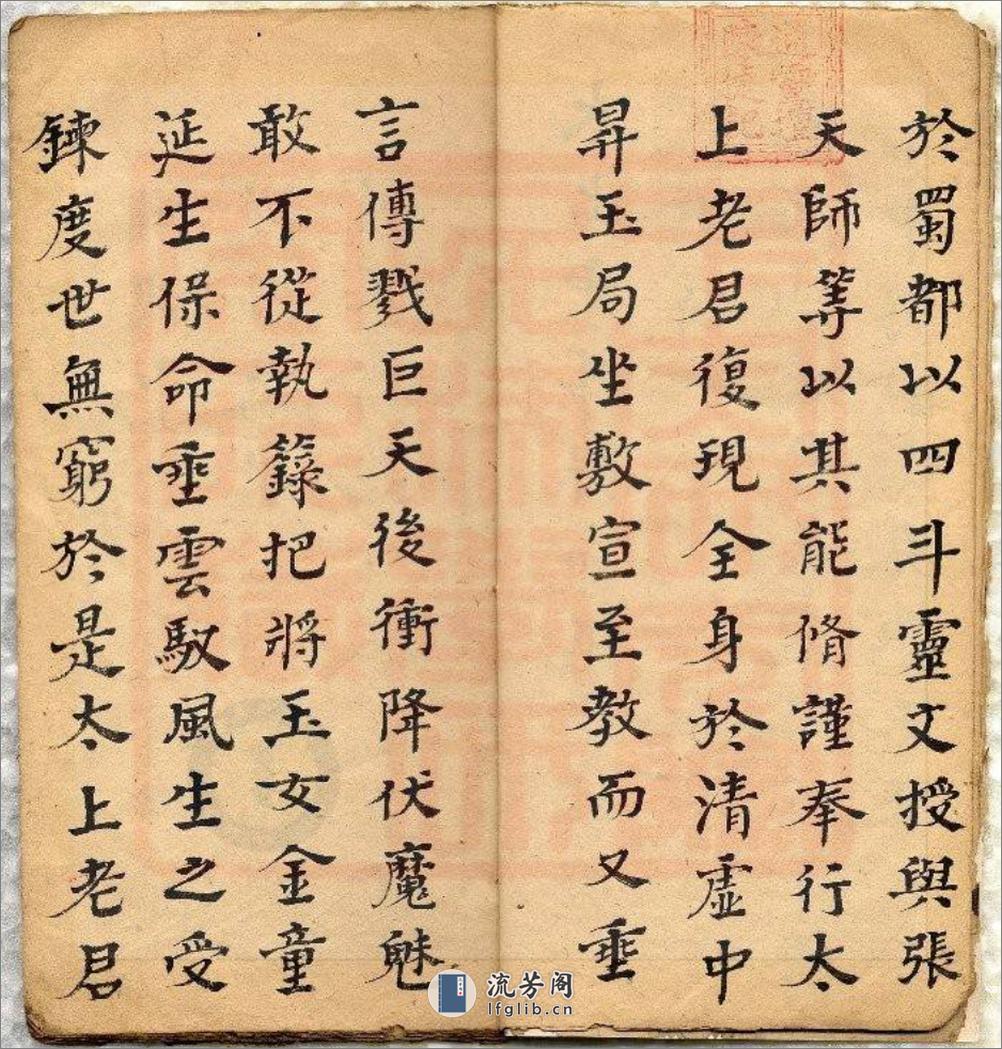 於蜀都以四斗靈文授與張
天師等以其能脩謹奉行太
上老君復現全身於清虛中
昇玉局坐敷宣至教而又垂
言傳戮巨天後衝降伏魔魅
敢不從執籙把將玉女金童
延生保命垂雲馭風生之受
鍊度世無窮於是太上老君
流芳阁
lfglib.cn